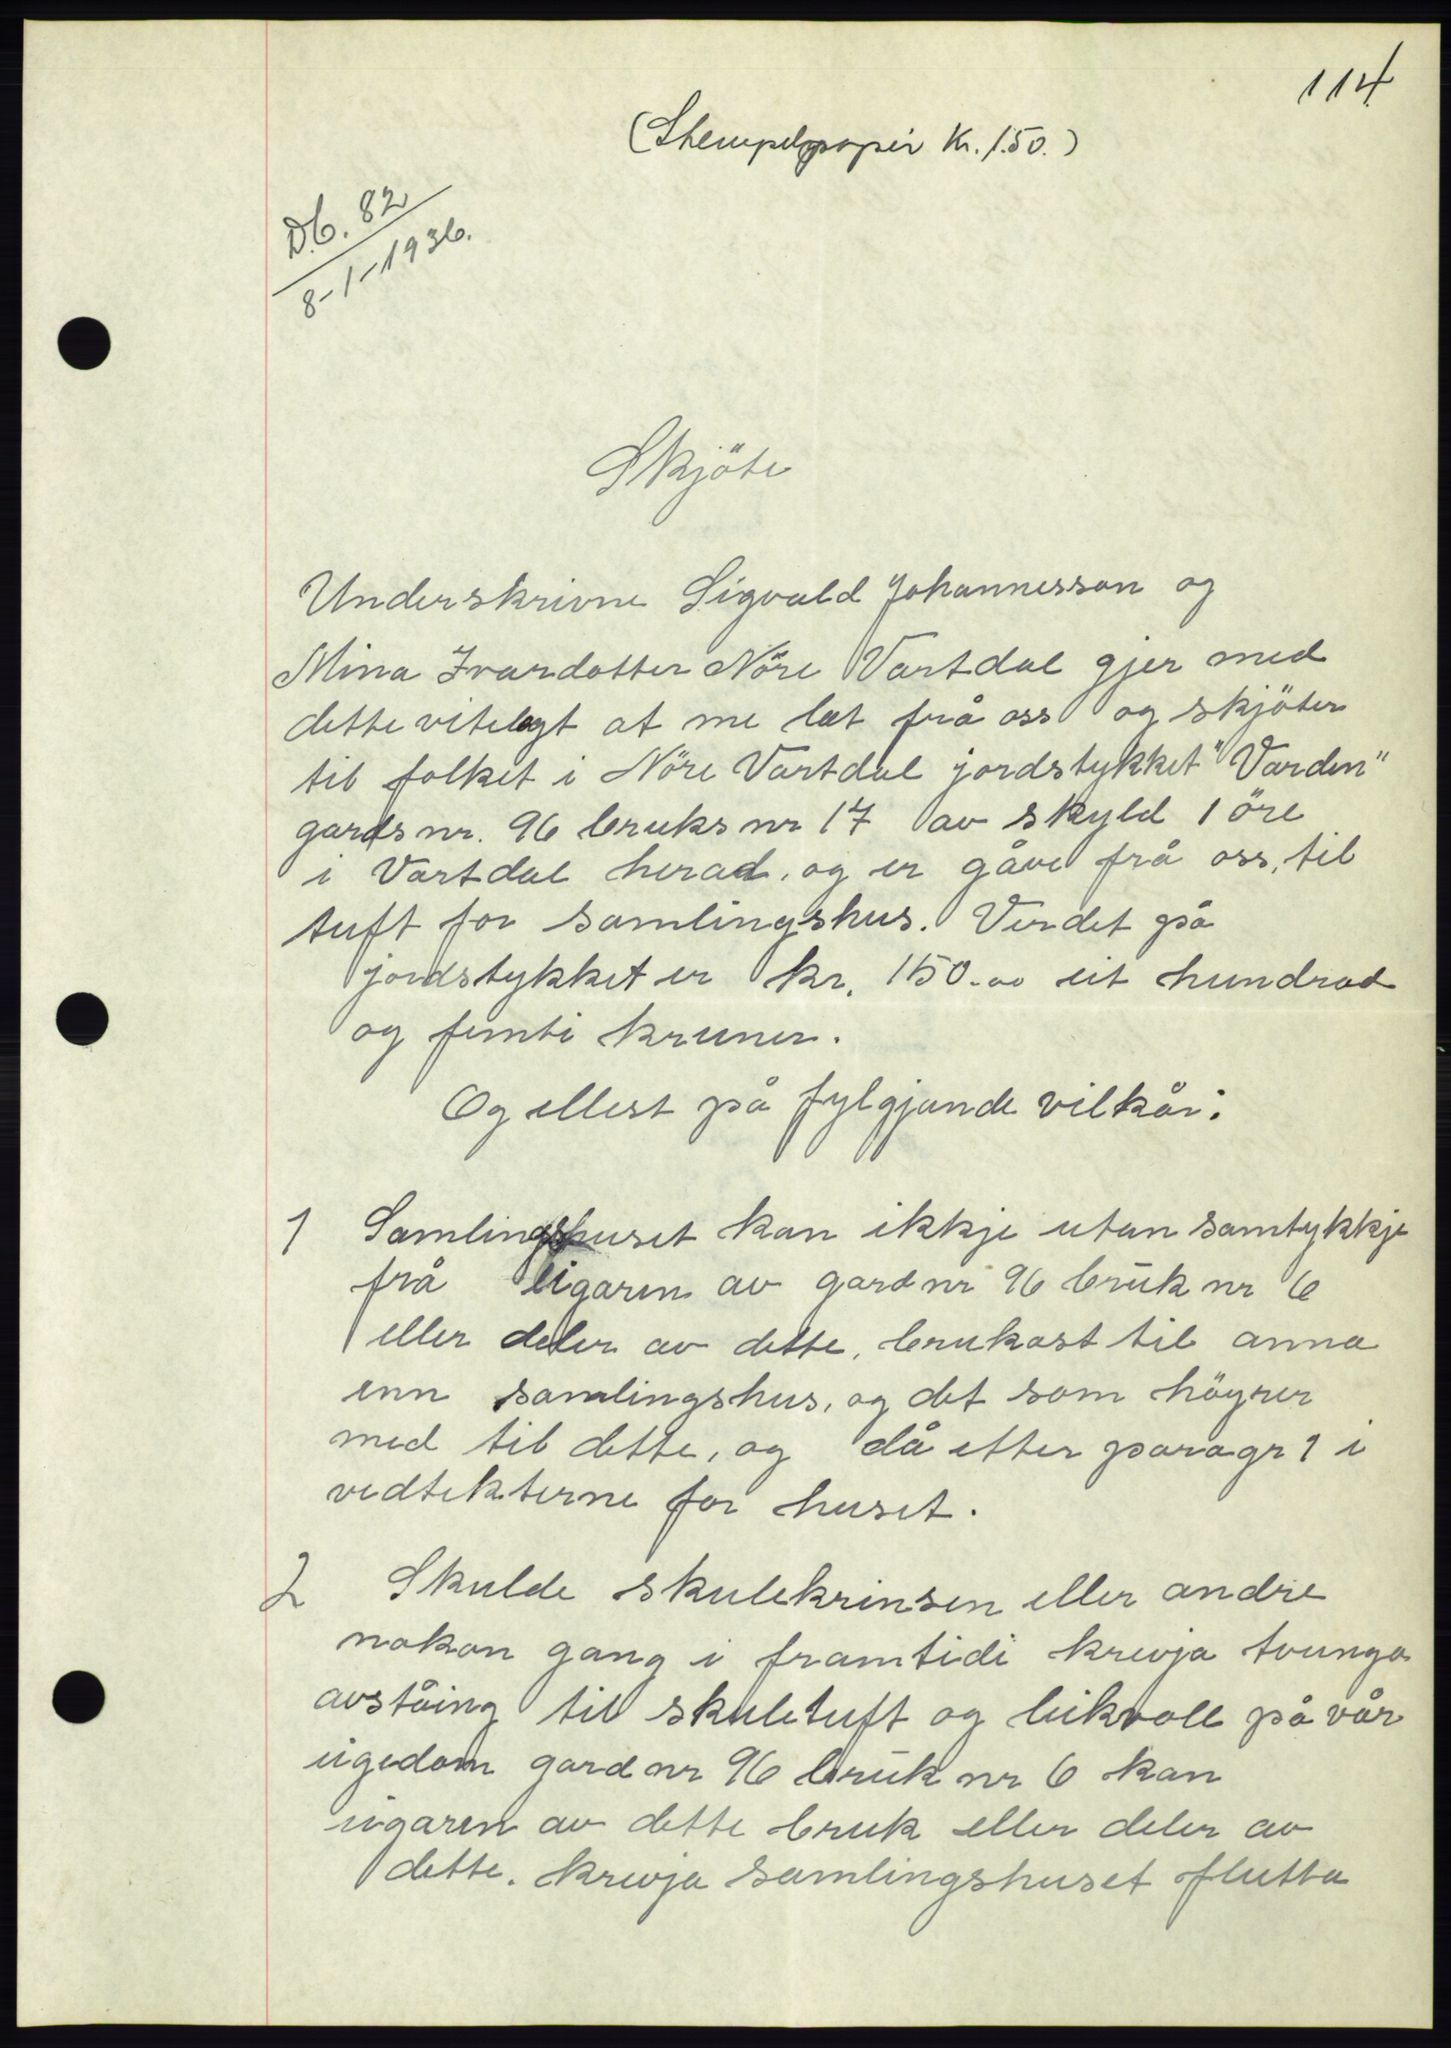 114
(Stempelpapir Kr. 1.50.)
Db. 82
8-1-1936.
Skjöte
Underskrivne Sigvald Johannesson og
Mina Ivardotter Nöre Vartdal gjer med
dette vitelegt at me let frå oss og skjöter
til folket i Nöre Vartdal jordstykket "Varden"
gards nr. 96 bruks nr 17 av skyld 1 öre
i Vartdal herad, og er gåve frå oss, til
tuft for samlingshus. Verdet på
jordstykket er kr. 150.00 eit hundrad
og femti kruner.
Og ellest på fylgjande vilkår:
1 Samlingshuset kan ikkje utan samtykkje
frå eigaren av gard nr 96 bruk nr 6
eller deler av dette, brukast til anna
enn samlingshus, og det som höyrer
med til dette, og då etter paragr 1 i
vedtekterne for huset.
2 Skulde skulekrinsen eller andre
nokon gang i framtidi krevja tvunga
avståing til skuletuft og leikvoll på vår
eigedom gard nr 96 bruk nr 6 kan
eigaren av dette bruk eller deler av
dette, krevja samlingshuset flutta